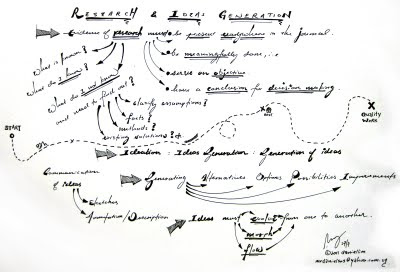 RESEARCH & IDEAS GENERATION
Evidence of research must be present everywhere in the Journal.
be meaningfully done, i.e
serve an objective
have a conclusion for decision making.
What is known?
What do I know?
What do I not know?
and need to find out!
clarify assumptions?
facts?
methods?
existing solutions?
START
X
Quality
Works
Ideation = Ideas Generation = Generation of ideas
Communication
of ideas
Sketches
Annotation/Description
Generating Alternatives Options Possibilities Improvements
Ideas must evolve from one to another.
morph
flow
©2011 danielim